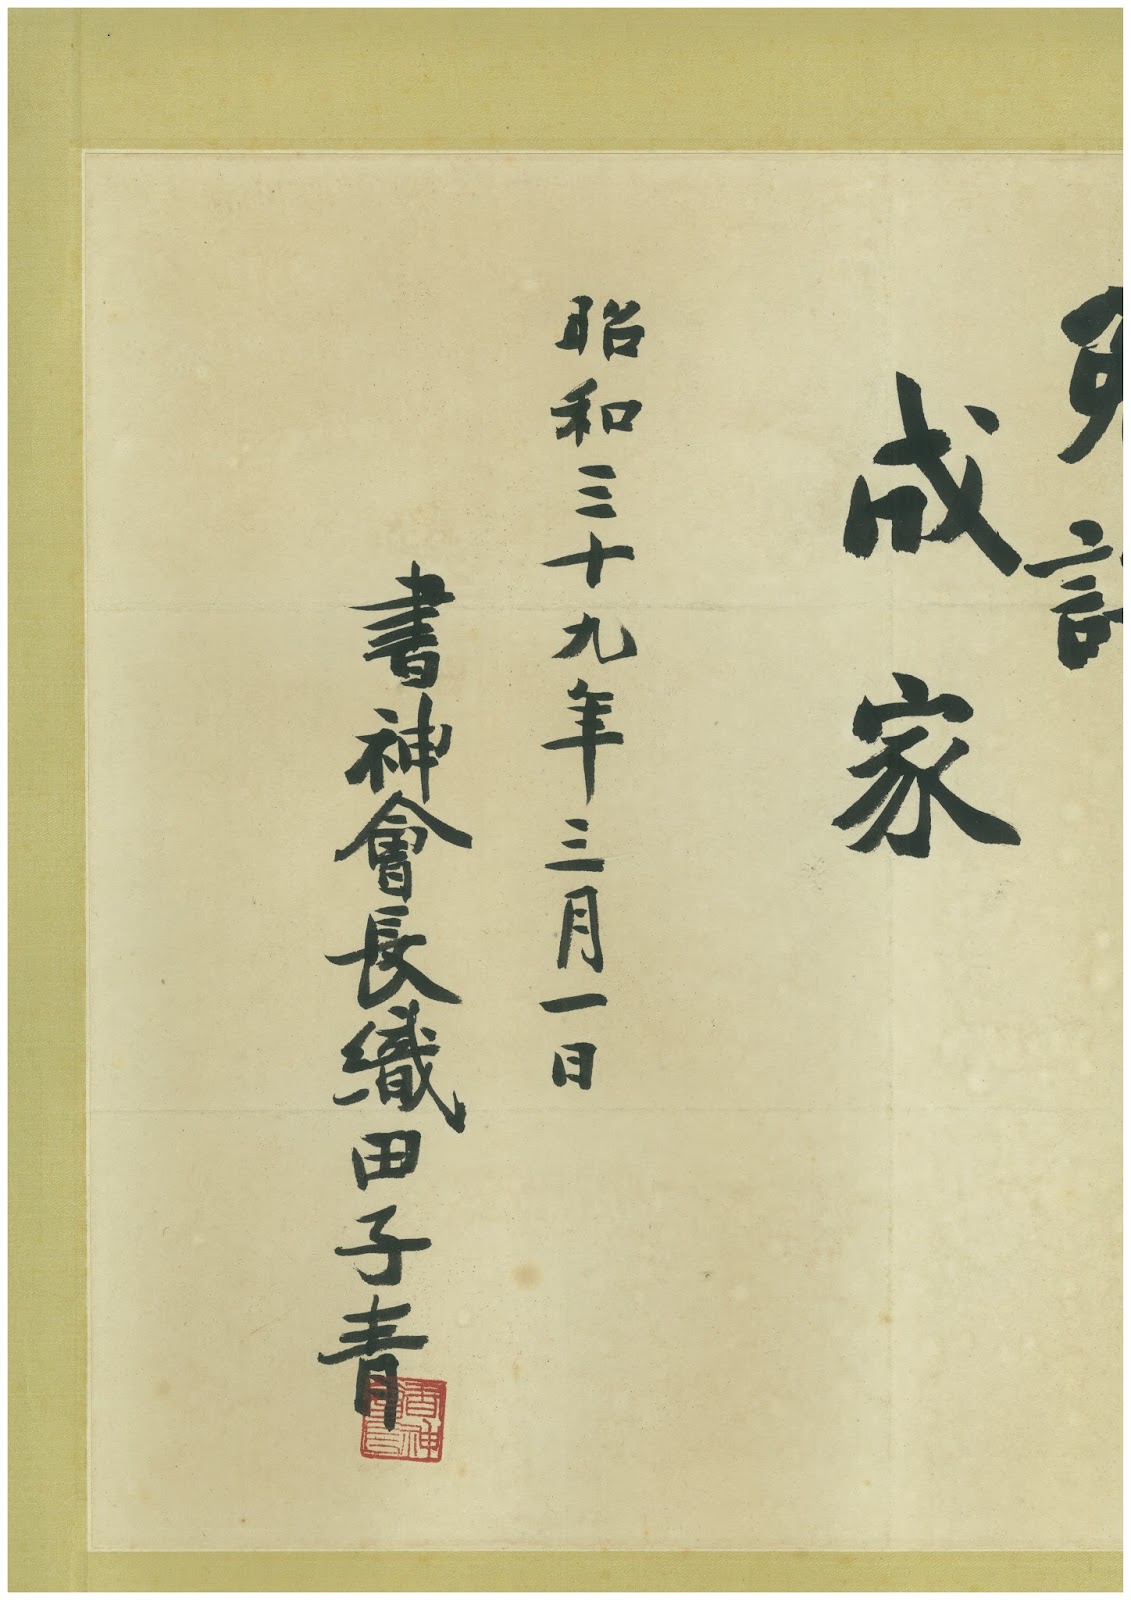 成家
昭和三十九年三月一日
書神會長織田子青